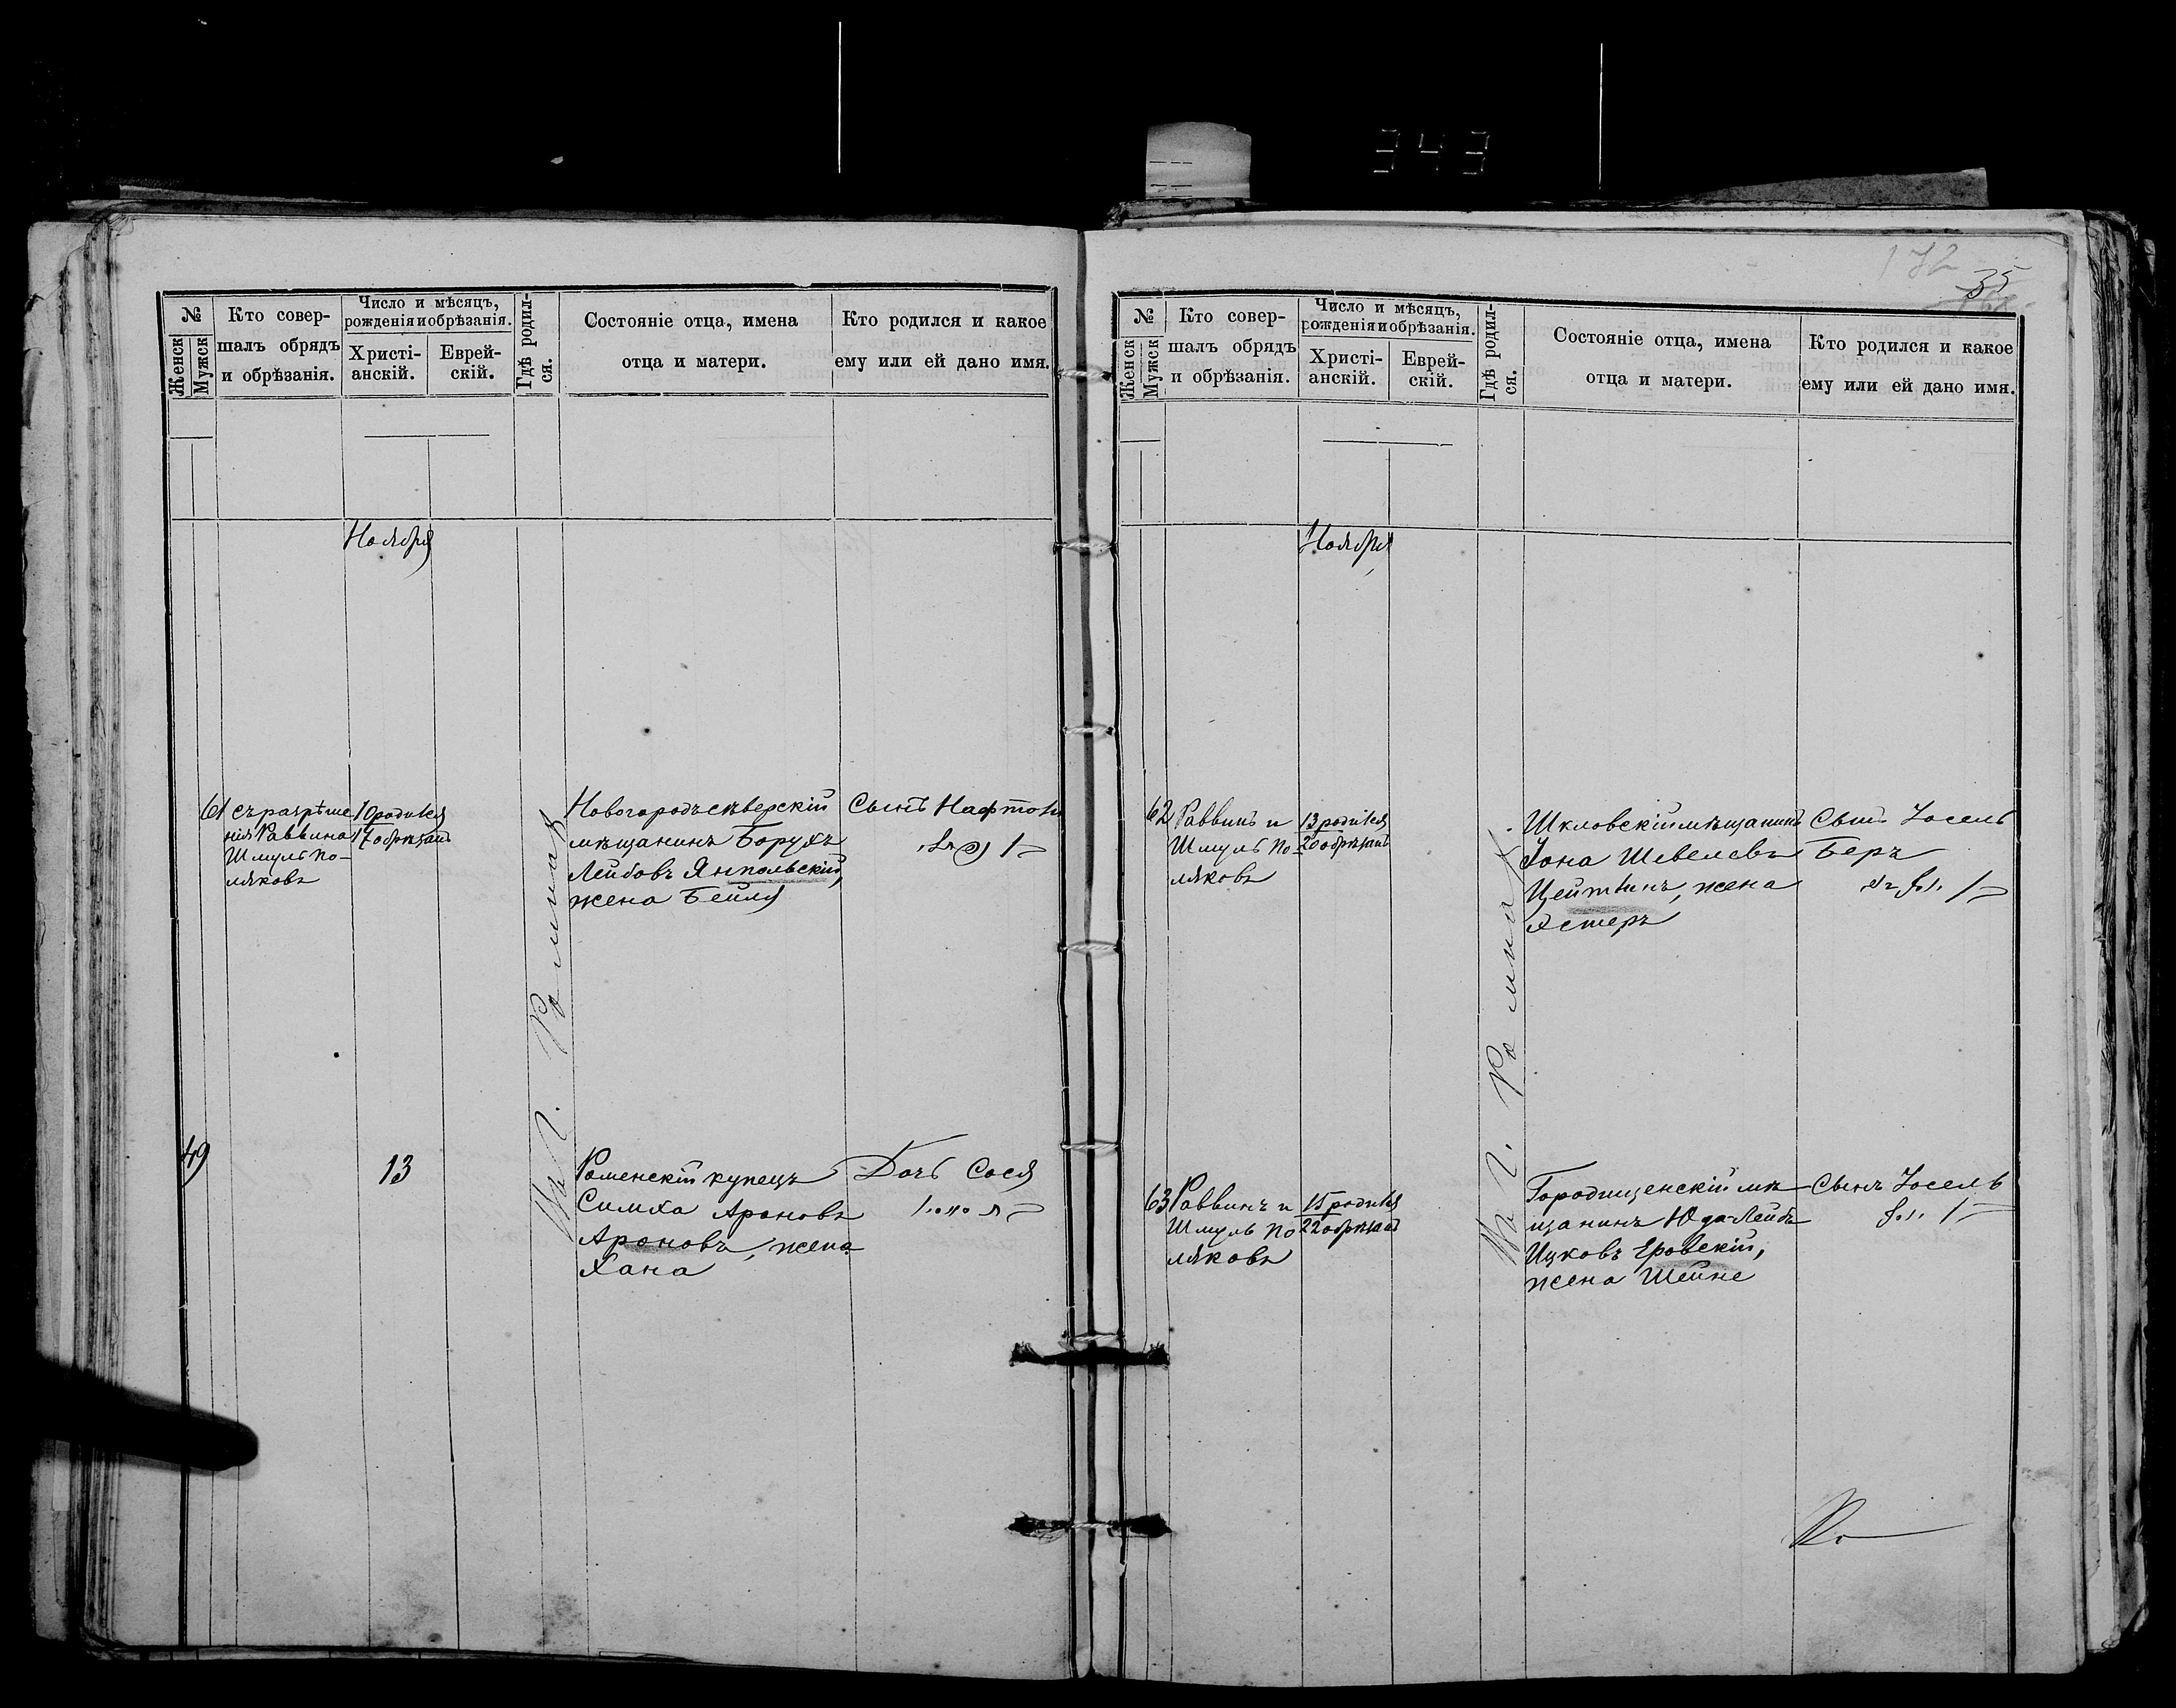 343
172
35
№
Женск
Мужск
Кто совер-
шалъ обрядъ
и обрѣзанія.
Число и мѣсяцъ,
рожденія и обрѣзанія.
Христі-
анскій.
Еврей-
скій.
Гдѣ родил-
ся.
Состояніе отца, имена
отца и матери.
Кто родился и какое
ему или ей дано имя.
Ноября
61
съ разрѣше
нія Раввина
Шмуль По-
ляковъ
10 родился
17 обрѣзанъ
Новогородъсѣверскій
мѣщанинъ Борухъ
Лейбовъ Янпольскій,
жена Бейля
Сынъ Нафтоли
49
13
Роменскій купецъ
Симха Ароновъ
Ароновъ, жена
Хана
Дочь Сося
Въ г. Ромнах
№
Женск
Мужск
Кто совер-
шалъ обрядъ
и обрѣзанія.
Число и мѣсяцъ,
рожденія и обрѣзанія.
Христі-
анскій.
Еврей-
скій.
Гдѣ родил-
ся.
Состояніе отца, имена
отца и матери.
Кто родился и какое
ему или ей дано имя.
Ноября
62
Раввинъ и
Шмуль По
ляковъ
13 родился
20 обрѣзанъ
Шкловскій мѣщанинъ
Іона Шевелевъ
Цейтлинъ, жена
Эстеръ
Сынъ Іосель
Беръ
63
Раввинъ и
Шмуль По
ляковъ
15 родился
22 обрѣзанъ
Городищенскій мѣ
щанинъ Юда-Лейбъ
Ицковъ Еровскій,
жена Шейне
Сынъ Іосель
Въ г. Ромнах